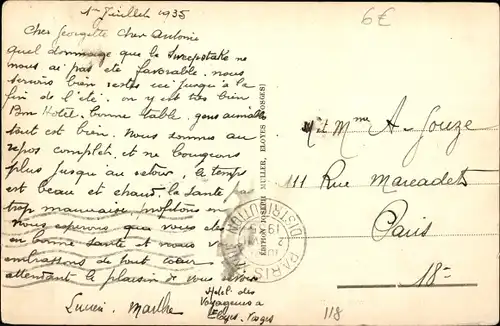 1er Juillet 1935
6€
Cher Georgette Cher Antonin
quel dommage que le Sweepstake ne
nous ai pas été favorable. nous
serions bien restés ici jusqu'à la
fin de l'été. on y est très bien
Bon Hotel. bonne table. gens aimables
tout est bien. nous donnons au
repos complet, et ne bougeons
plus jusqu'au retour, le temps
est beau et chaud, la santé pas
trop mauvaise, profitons en
nous espérons que vous êtes
en bonne santé et nous vous
embrassons de tout coeur
attendant le plaisir de vous
Lucien. Marthe
Hotel des
Voyageurs à
Eloyes. Vosges
EDITION JOSEPH MULLER, ELOYES (VOSGES)
PARIS
DISTRIBUTION
M et Mme A. Gouze
111 Rue Marcadet
Paris
18e
118